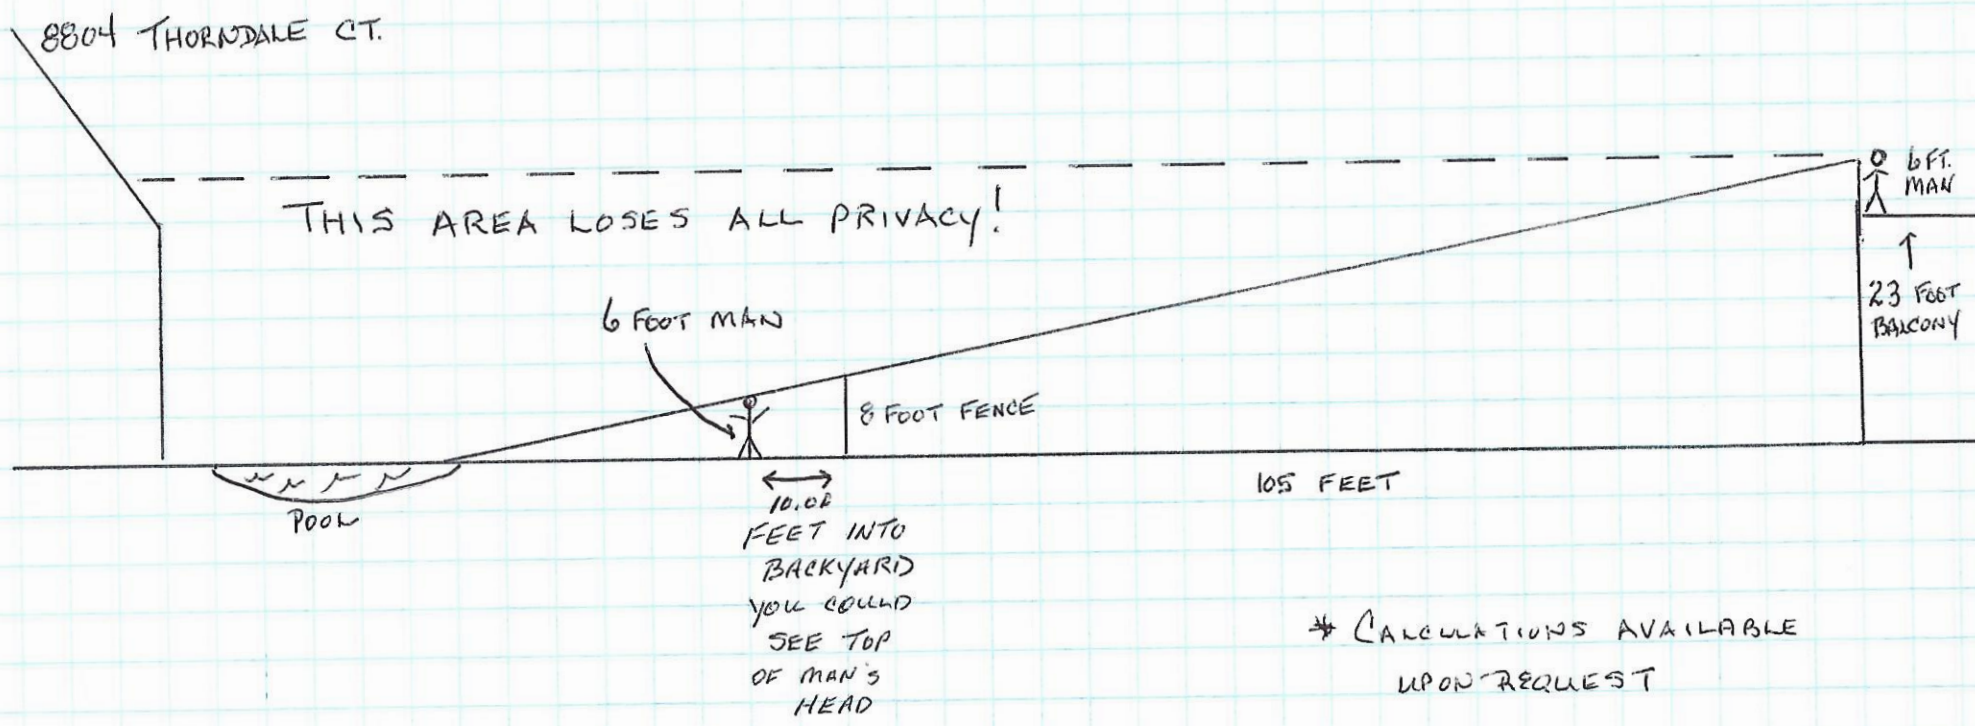 8804 THORNDALE CT.
6 FT.
MAN
THIS AREA LOSES ALL PRIVACY!
6 FOOT MAN
23 FOOT
BALCONY
8 FOOT FENCE
105 FEET
POOL
FEET INTO
BACKYARD
YOU COULD
SEE TOP
OF MAN'S
HEAD
* CALCULATIONS AVAILABLE
UPON REQUEST